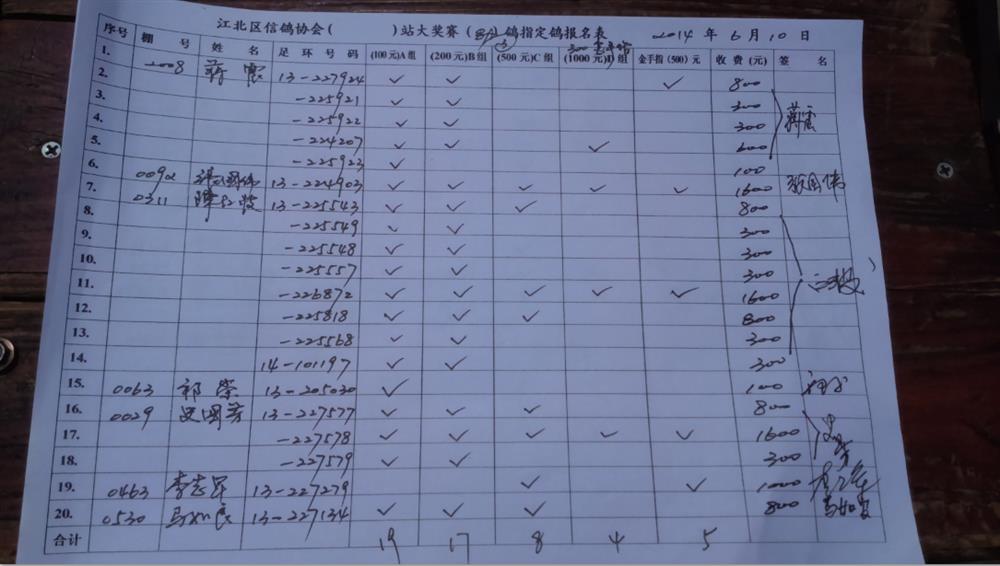 江北区信鸽协会( )站大奖赛( )鸽指定鸽报名表 2014 年 6 月 10 日
序号 棚 号 姓 名 足 环 号 码 (100元)A组 (200元)B组 (500元)C组 (1000元)D组 金手指(500)元 收 费(元) 签 名
1. 2008 蒋 震 13-227924 ✓ ✓ ✓ 800
2. -225921 ✓ ✓ 300
3. -225922 ✓ ✓ 300 蒋震
4. -224207 ✓ ✓ ✓ 600
5. -225923 ✓ 100
6. 0092 13-224903 ✓ ✓ ✓ ✓ ✓ 1600
7. 0311 13-225543 ✓ ✓ ✓ 800
8. -225549 ✓ ✓ 300
9. -225548 ✓ ✓ 300
10. -225557 ✓ ✓ 300
11. -226872 ✓ ✓ ✓ ✓ ✓ 1600
12. -225818 ✓ ✓ ✓ 800
13. -225568 ✓ ✓ 300
14. 14-101197 ✓ ✓ 300
15. 0063 祁 荣 13-205030 ✓ 100
16. 0029 史国芳 13-227577 ✓ ✓ ✓ 800
17. -227578 ✓ ✓ ✓ ✓ ✓ 1600
18. -227579 ✓ ✓ 300
19. 0463 李志军 13-227279 ✓ ✓ 1000
20. 0530 马如良 13-227134 ✓ ✓ ✓ 800 马如良
合计 19 17 8 4 5